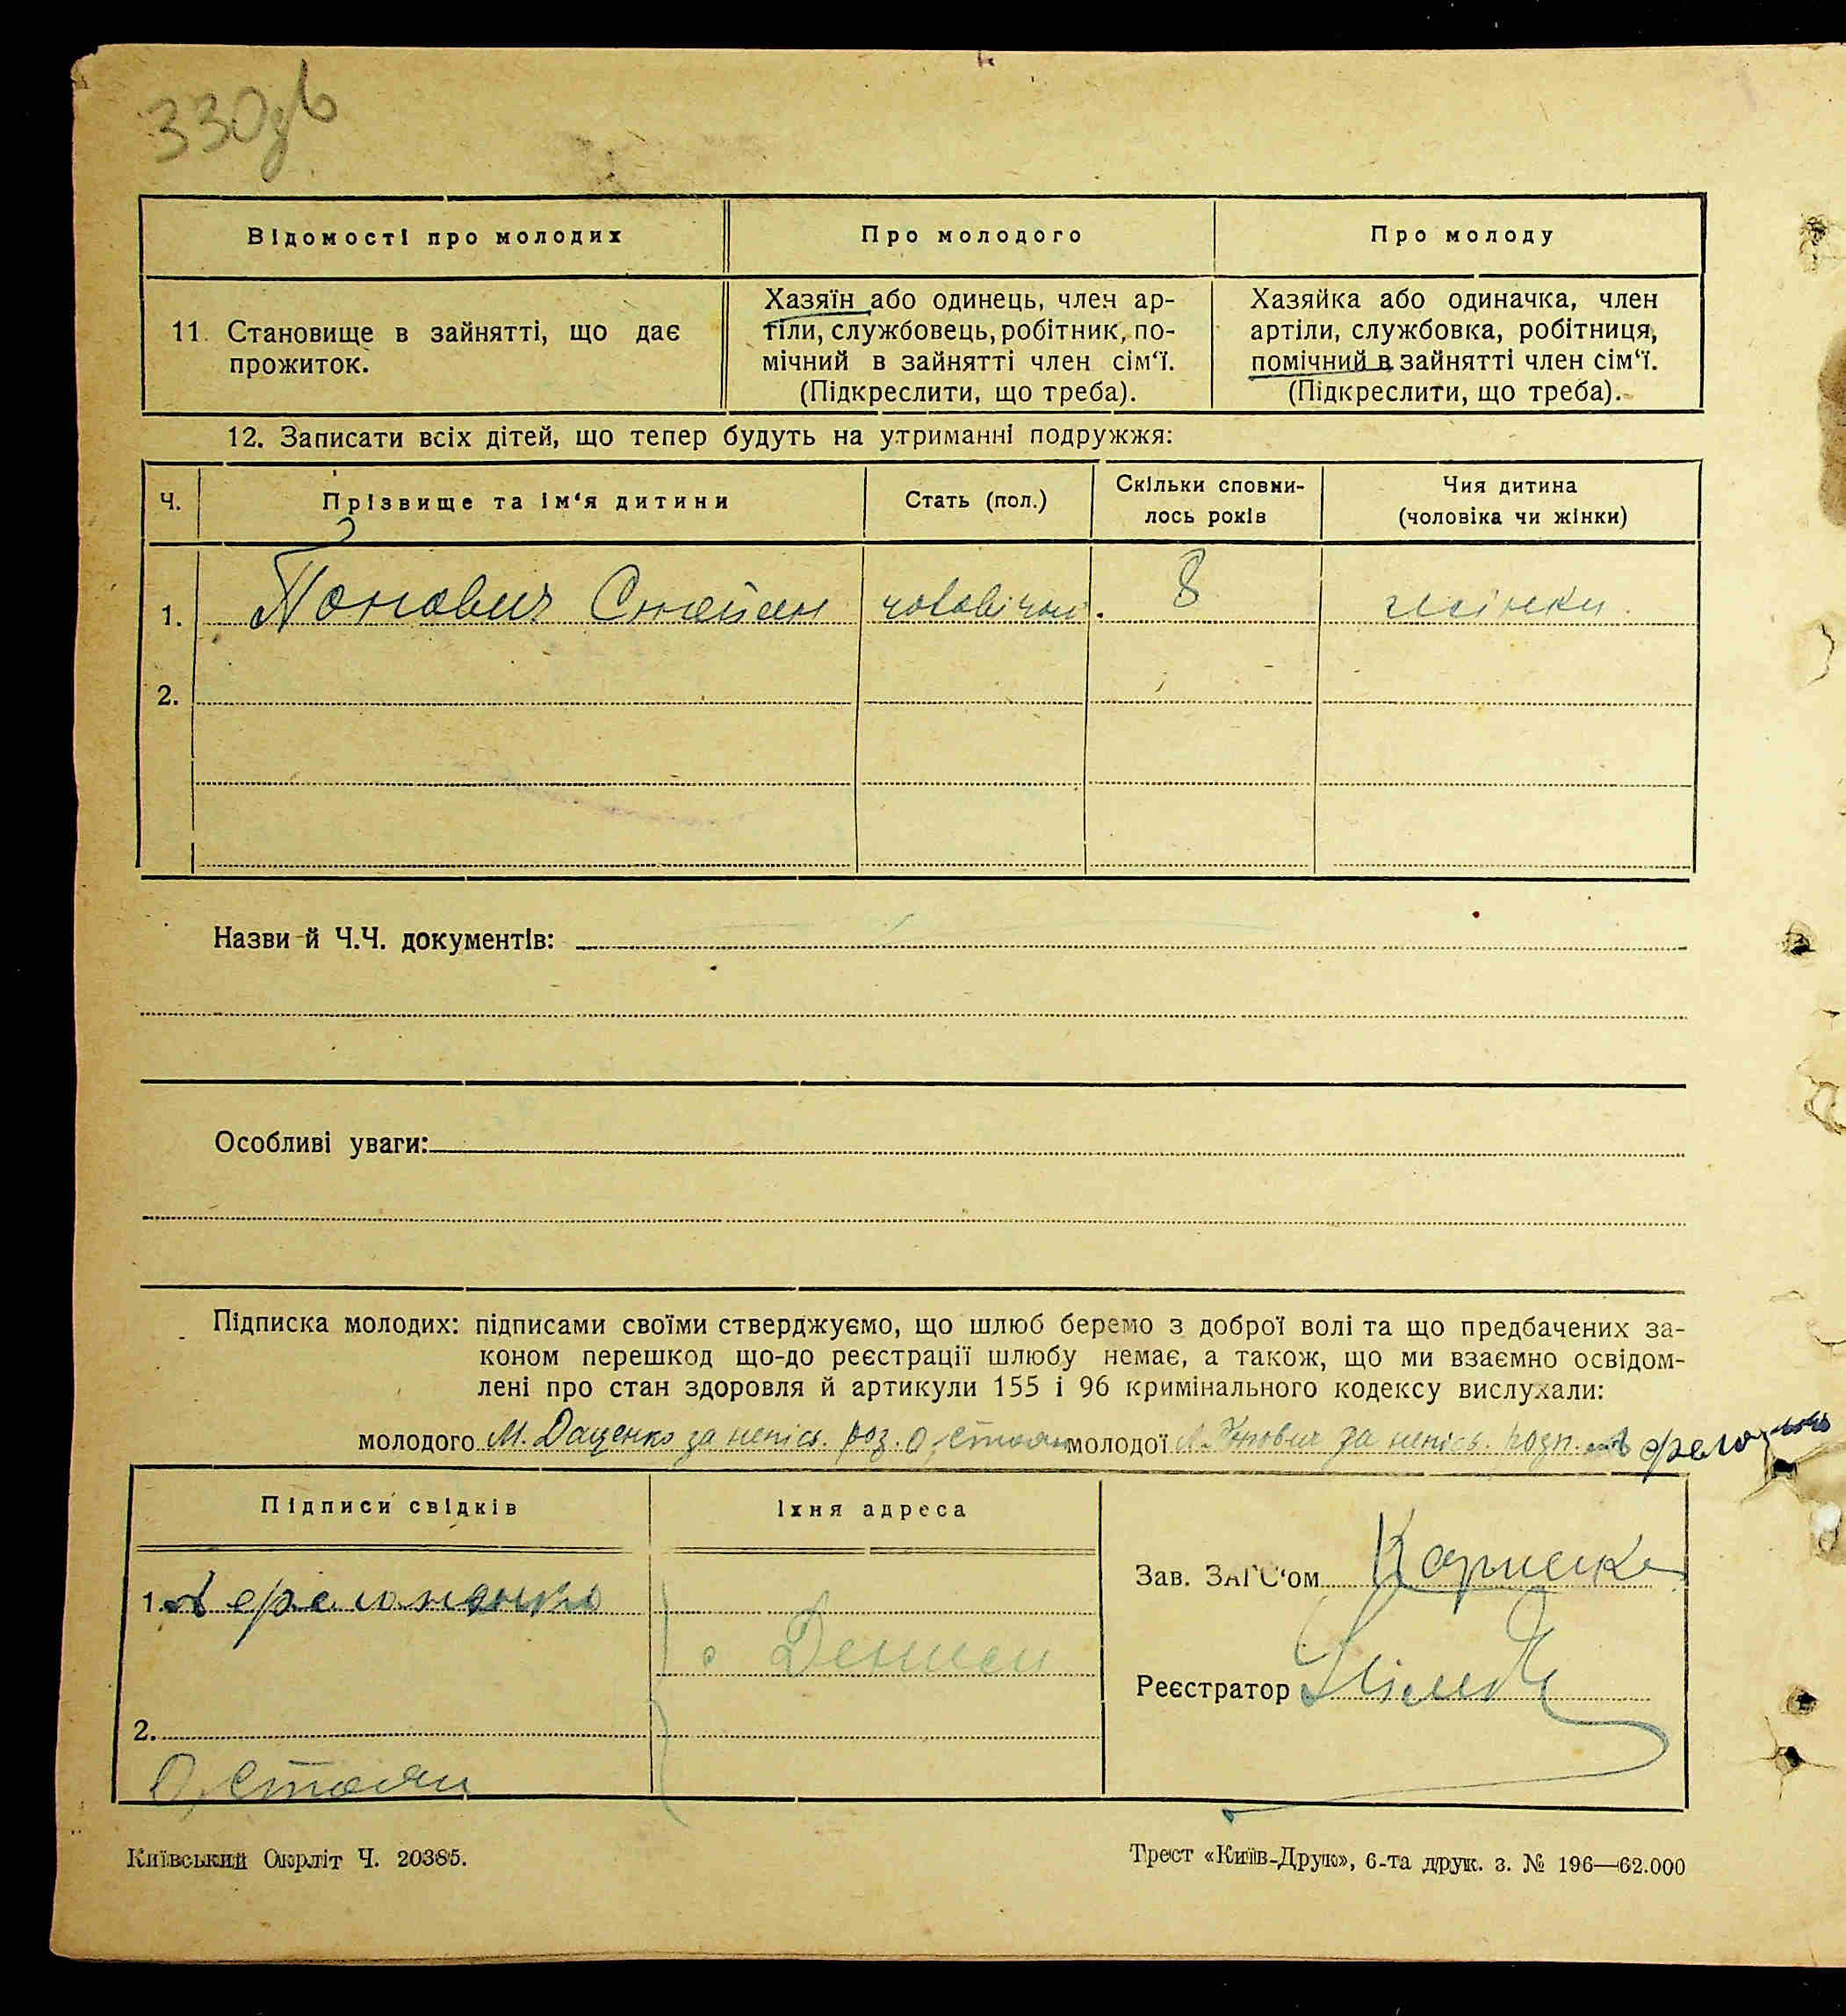 330зв
Відомості про молодих
Про молодого
Про молоду
11. Становище в зайнятті, що дає
прожиток.
Хазяїн або одинець, член ар-
тіли, службовець, робітник, по-
мічний в зайнятті член сім‘ї.
(Підкреслити, що треба).
Хазяйка або одиначка, член
артіли, службовка, робітниця,
помічний в зайнятті член сім‘ї.
(Підкреслити, що треба).
12. Записати всіх дітей, що тепер будуть на утриманні подружжя:
Ч.
Прізвище та ім‘я дитини
Стать (пол.)
Скільки сповни-
лось років
Чия дитина
(чоловіка чи жінки)
1. Попович Степан чоловічої. 8 жінки.
2.
Назви й Ч.Ч. документів:
Особливі уваги:
Підписка молодих: підписами своїми стверджуємо, що шлюб беремо з доброї волі та що предбачених за-
коном перешкод що-до реєстрації шлюбу немає, а також, що ми взаємно освідом-
лені про стан здоровля й артикули 155 і 96 кримінального кодексу вислухали:
молодого М. Даценко за непісь. роз. О. Стоян молодої Попович за непісь. розп.
Підписи свідків
Їхня адреса
1.
2.
О. Стоян
Зав. ЗАГС‘ом
Реєстратор
Київський Окрліт Ч. 20385.
Трест «Київ-Друк», 6-та друк. з. № 196—62.000